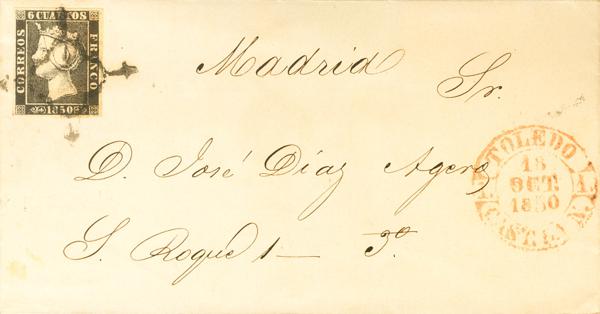 6 CUARTOS
CORREOS
FRANCO
1850
Madrid
Sr.
D. José Díaz Agero
S. Roque 1 — 3.º
TOLEDO
18
SET.
1850